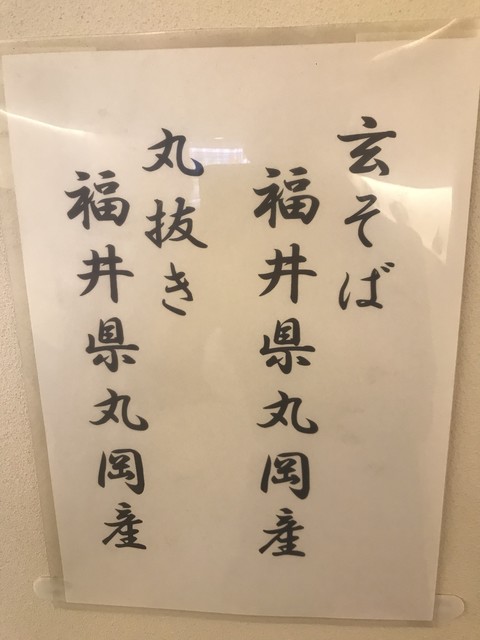 玄そば
福井県丸岡産
丸抜き
福井県丸岡産